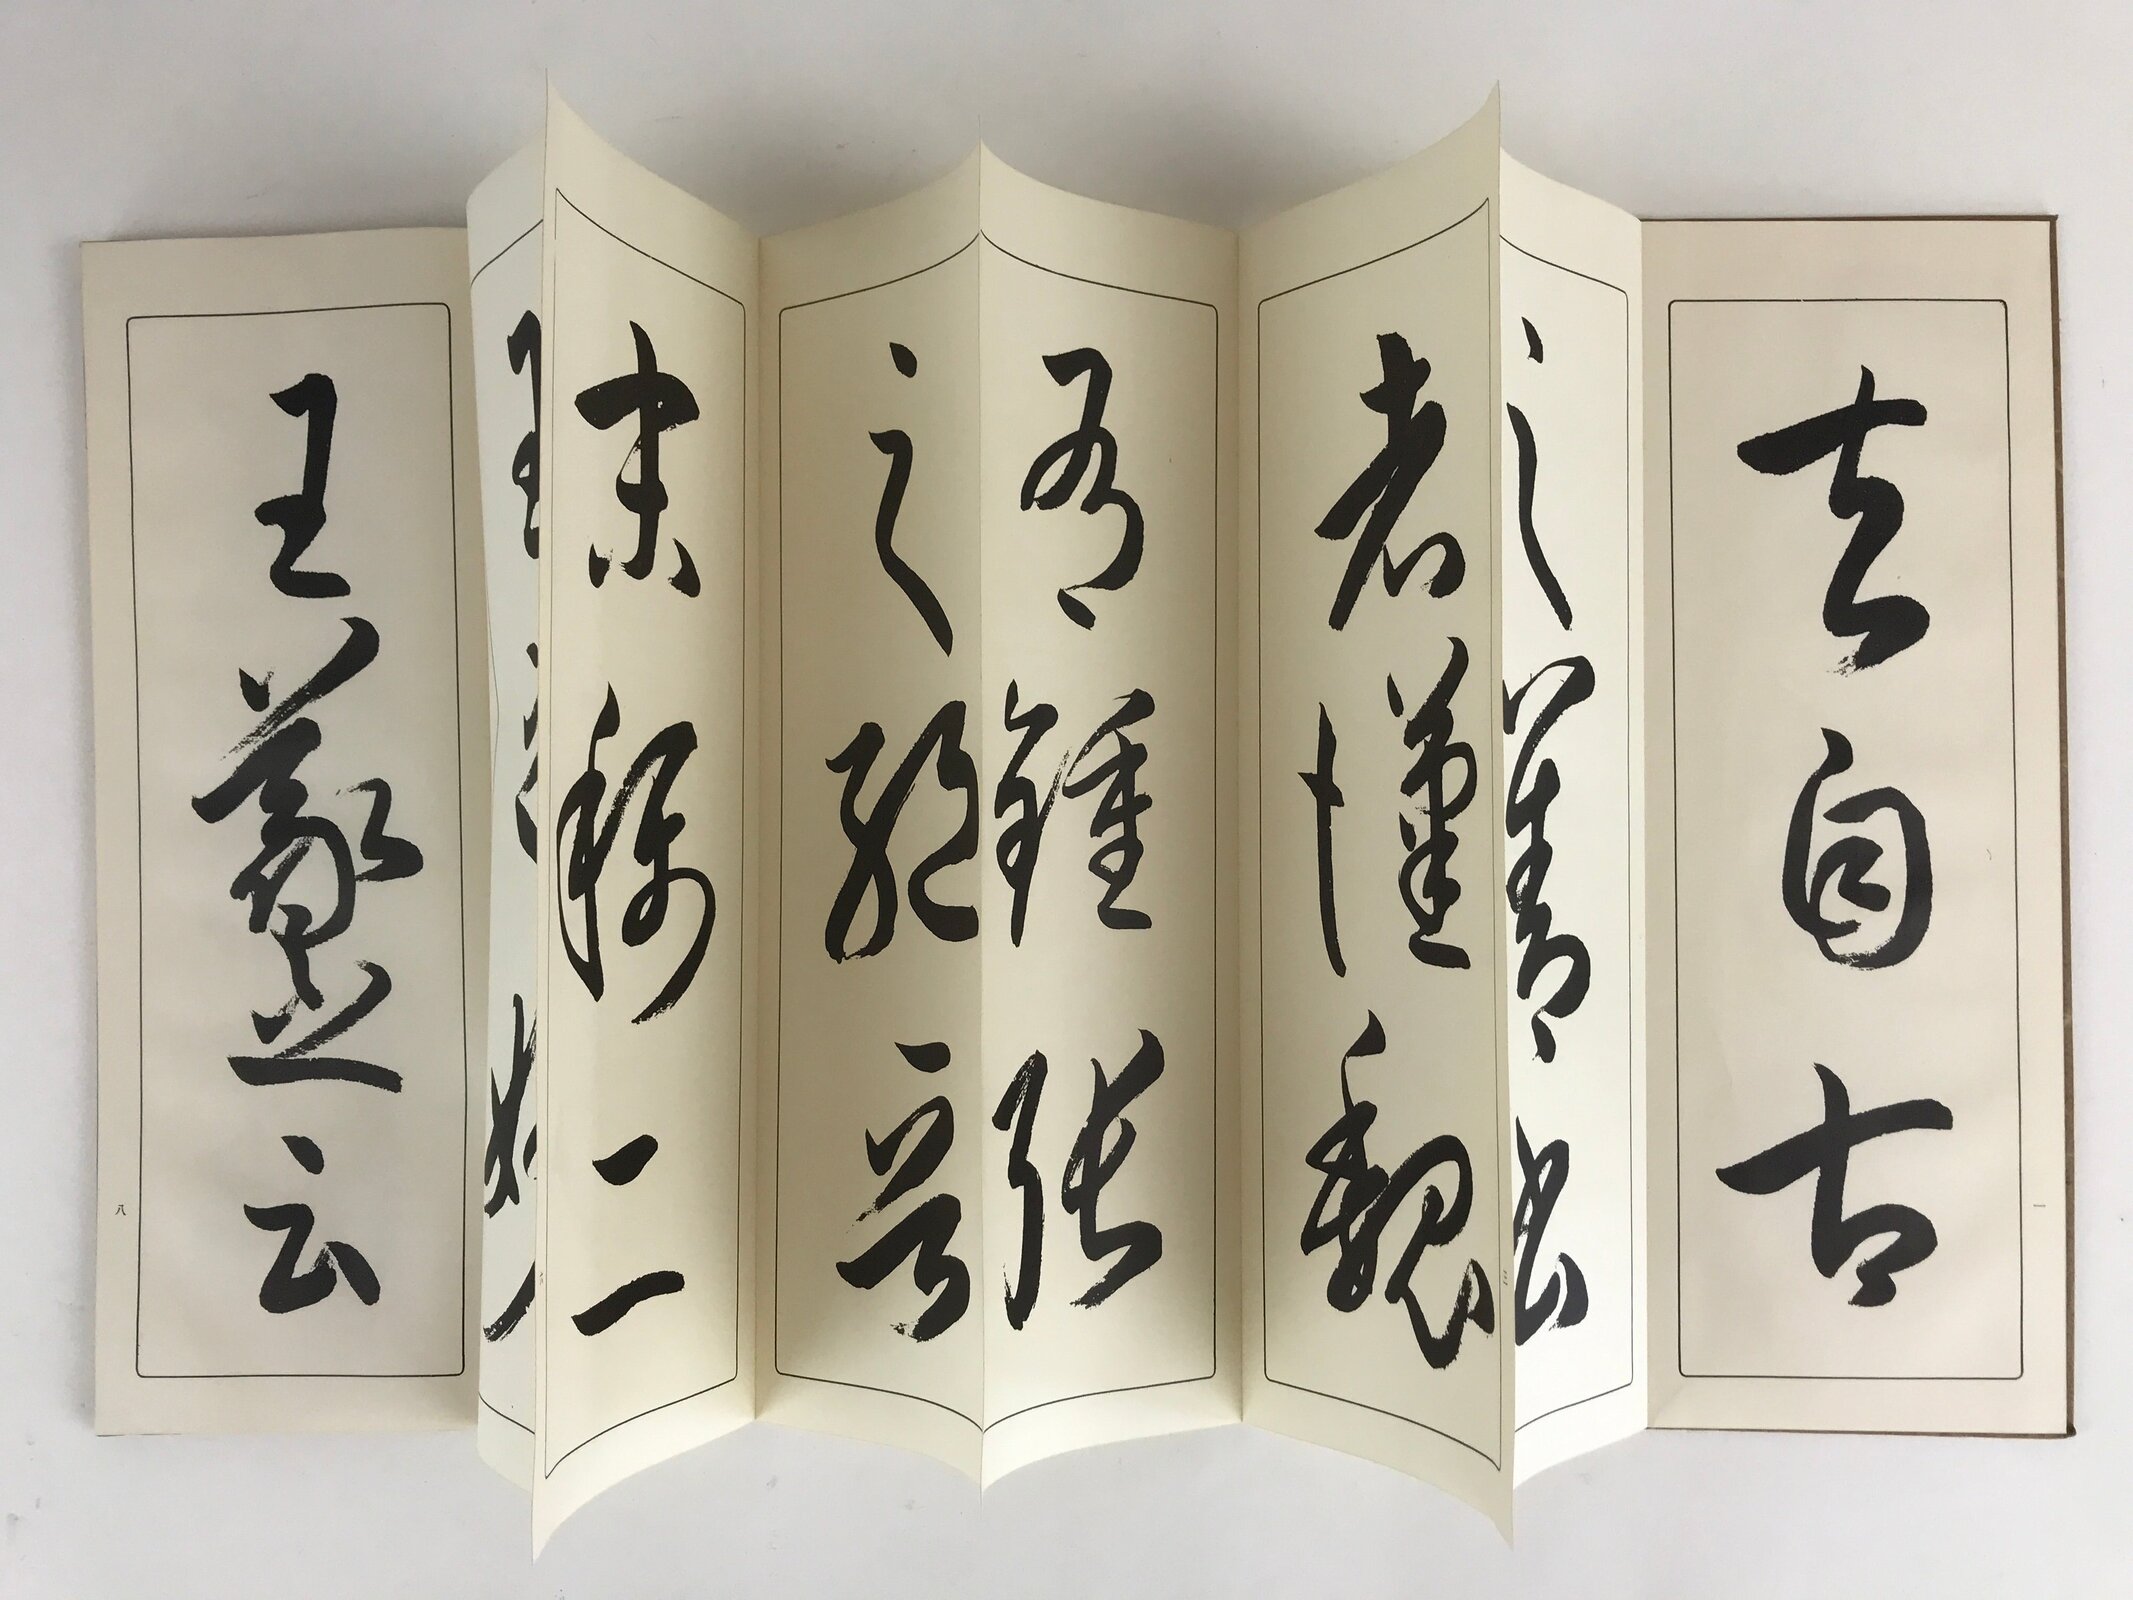 夫自古
一
之善書
者漢魏
有鍾張
之絶晉
末稱二
王之妙
王羲之云
八